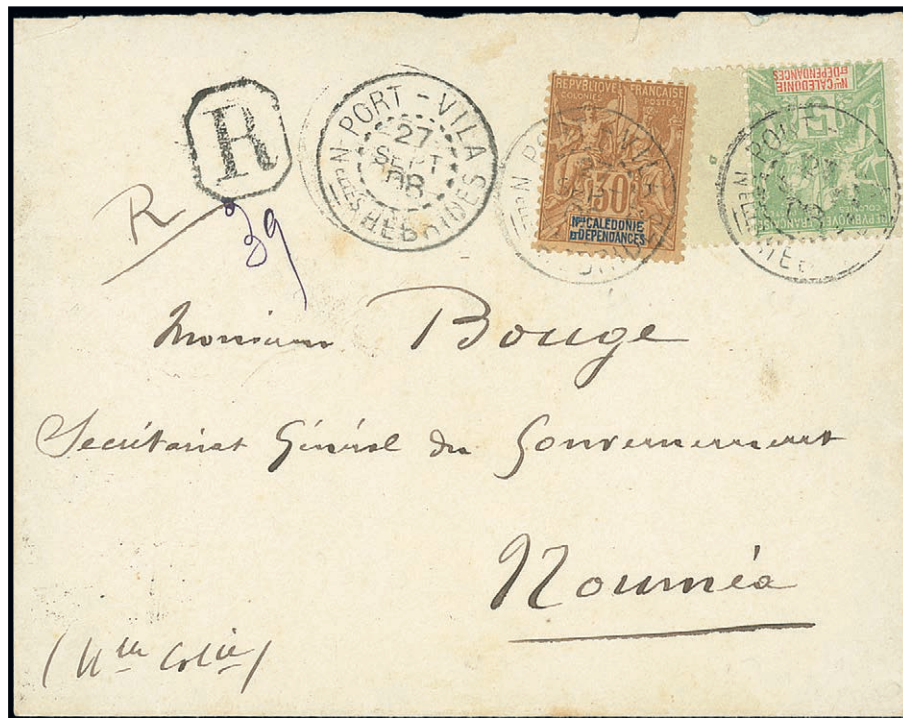 R
PORT-VILA
27
SEPT
08
Nlles HEBRIDES
REPUBLIQUE FRANÇAISE
COLONIES POSTES
30
Nlle CALEDONIE
ET DEPENDANCES
Nlle CALEDONIE
ET DEPENDANCES
5
REPUBLIQUE FRANÇAISE
R
39
Monsieur Bouge
Secrétariat Général du Gouvernement
Nouméa
(Nlle Calie)